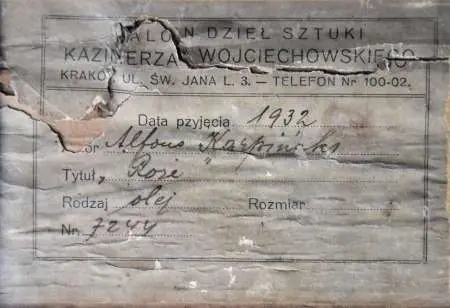 ALON DZIEŁ SZTUKI
KAZIMIERZA WOJCIECHOWSKIEGO
KRAKÓW UL. ŚW. JANA L. 3. — TELEFON Nr 100-02.
Data pzyjęcia 1932
ór Alfons Karpiński
Tytuł „Róże"
Rodzaj olej Rozmiar
Nr. 7244